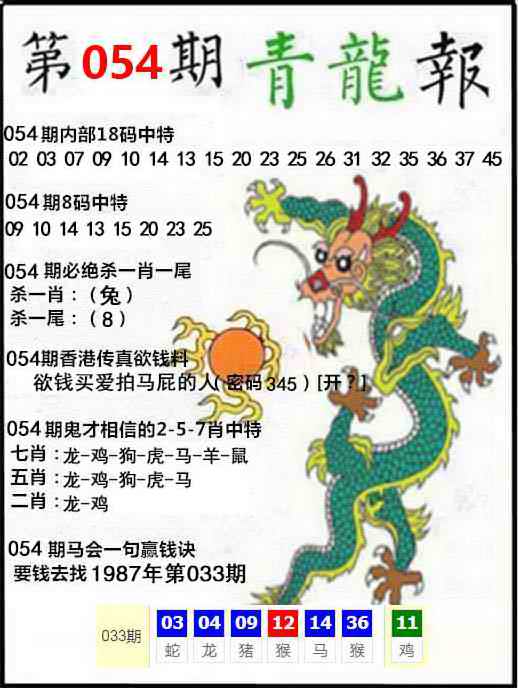 第054期青龍報
054期内部18码中特
02 03 07 09 10 14 13 15 20 23 25 26 31 32 35 36 37 45
054期8码中特
09 10 14 13 15 20 23 25
054 期必绝杀一肖一尾
杀一肖：（兔）
杀一尾：（8）
054期香港传真欲钱料
欲钱买爱拍马屁的人（密码345）[开？]
054期鬼才相信的2-5-7肖中特
七肖：龙-鸡-狗-虎-马-羊-鼠
五肖：龙-鸡-狗-虎-马
二肖：龙-鸡
054 期马会一句赢钱诀
要钱去找1987年第033期
033期 03 04 09 12 14 36 11
蛇 龙 猪 猴 马 猴 鸡